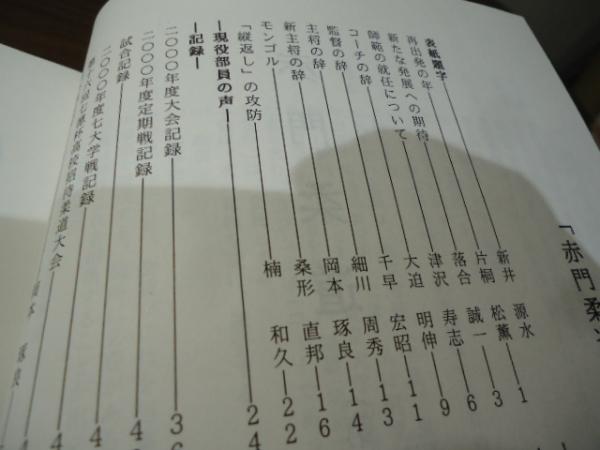 「赤門柔
表紙題字 新井 源水
再出発の年 片桐 松薫 1
新たな発展への期待 落合 誠一 3
師範の就任について 津沢 寿志 6
コーチの辞 大迫 明伸 9
監督の辞 千早 宏昭 11
主将の辞 細川 周秀 13
新主将の辞 岡本 琢良 14
モンゴル 桑形 直邦 16
「縦返し」の攻防 楠 和久 22
―現役部員の声― 24
―記録―
二〇〇〇年度大会記録 3
二〇〇〇年度定期戦記録 4
試合記録 4
二〇〇〇年度七大学戦記録 4
杯高校招待柔道大会 4
本 琢良